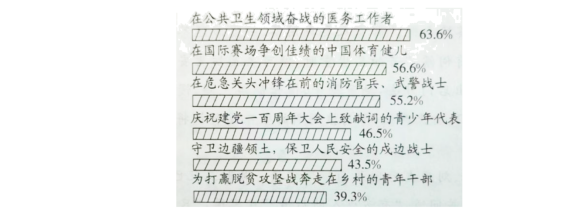 在公共卫生领域奋战的医务工作者
63.6%
在国际赛场争创佳绩的中国体育健儿
56.6%
在危急关头冲锋在前的消防官兵、武警战士
55.2%
庆祝建党一百周年大会上致献词的青少年代表
46.5%
守卫边疆领土，保卫人民安全的戍边战士
43.5%
为打赢脱贫攻坚战奔走在乡村的青年干部
39.3%